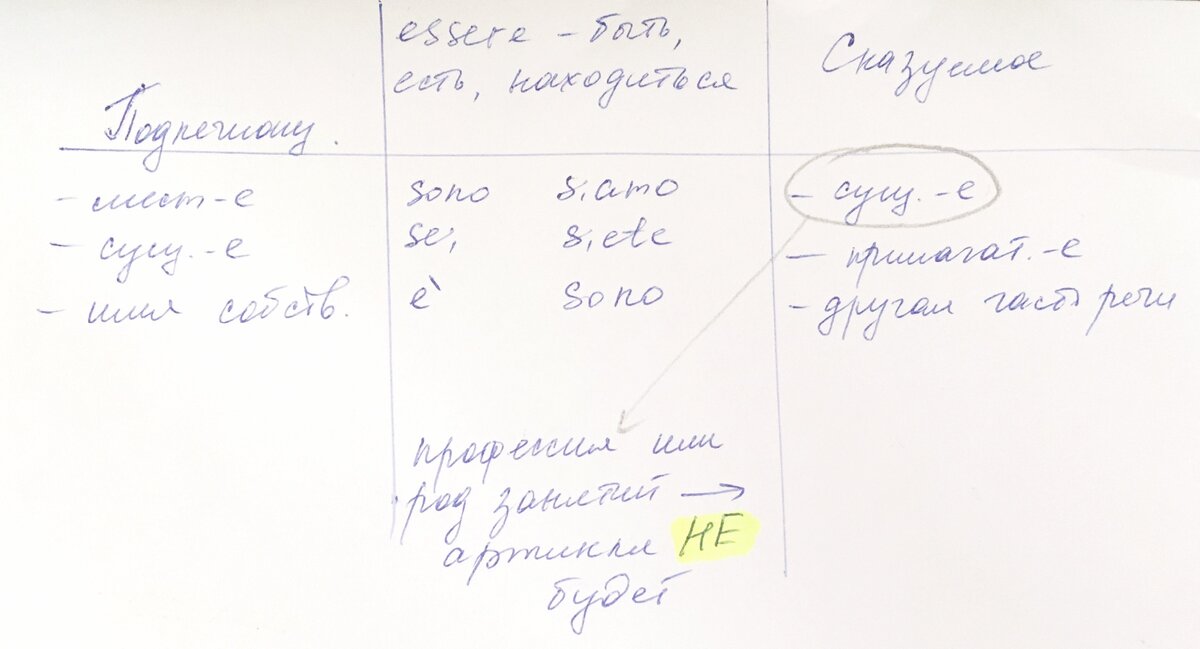 essere – быть,
есть, находиться
Сказуемое
Подлежащ.
- мест-е
- сущ.-е
- имя собств.
sono siamo
sei siete
è sono
- сущ.-е
- прилагат.-е
- другая часть речи
профессия или
род занятий →
артикля НЕ
будет